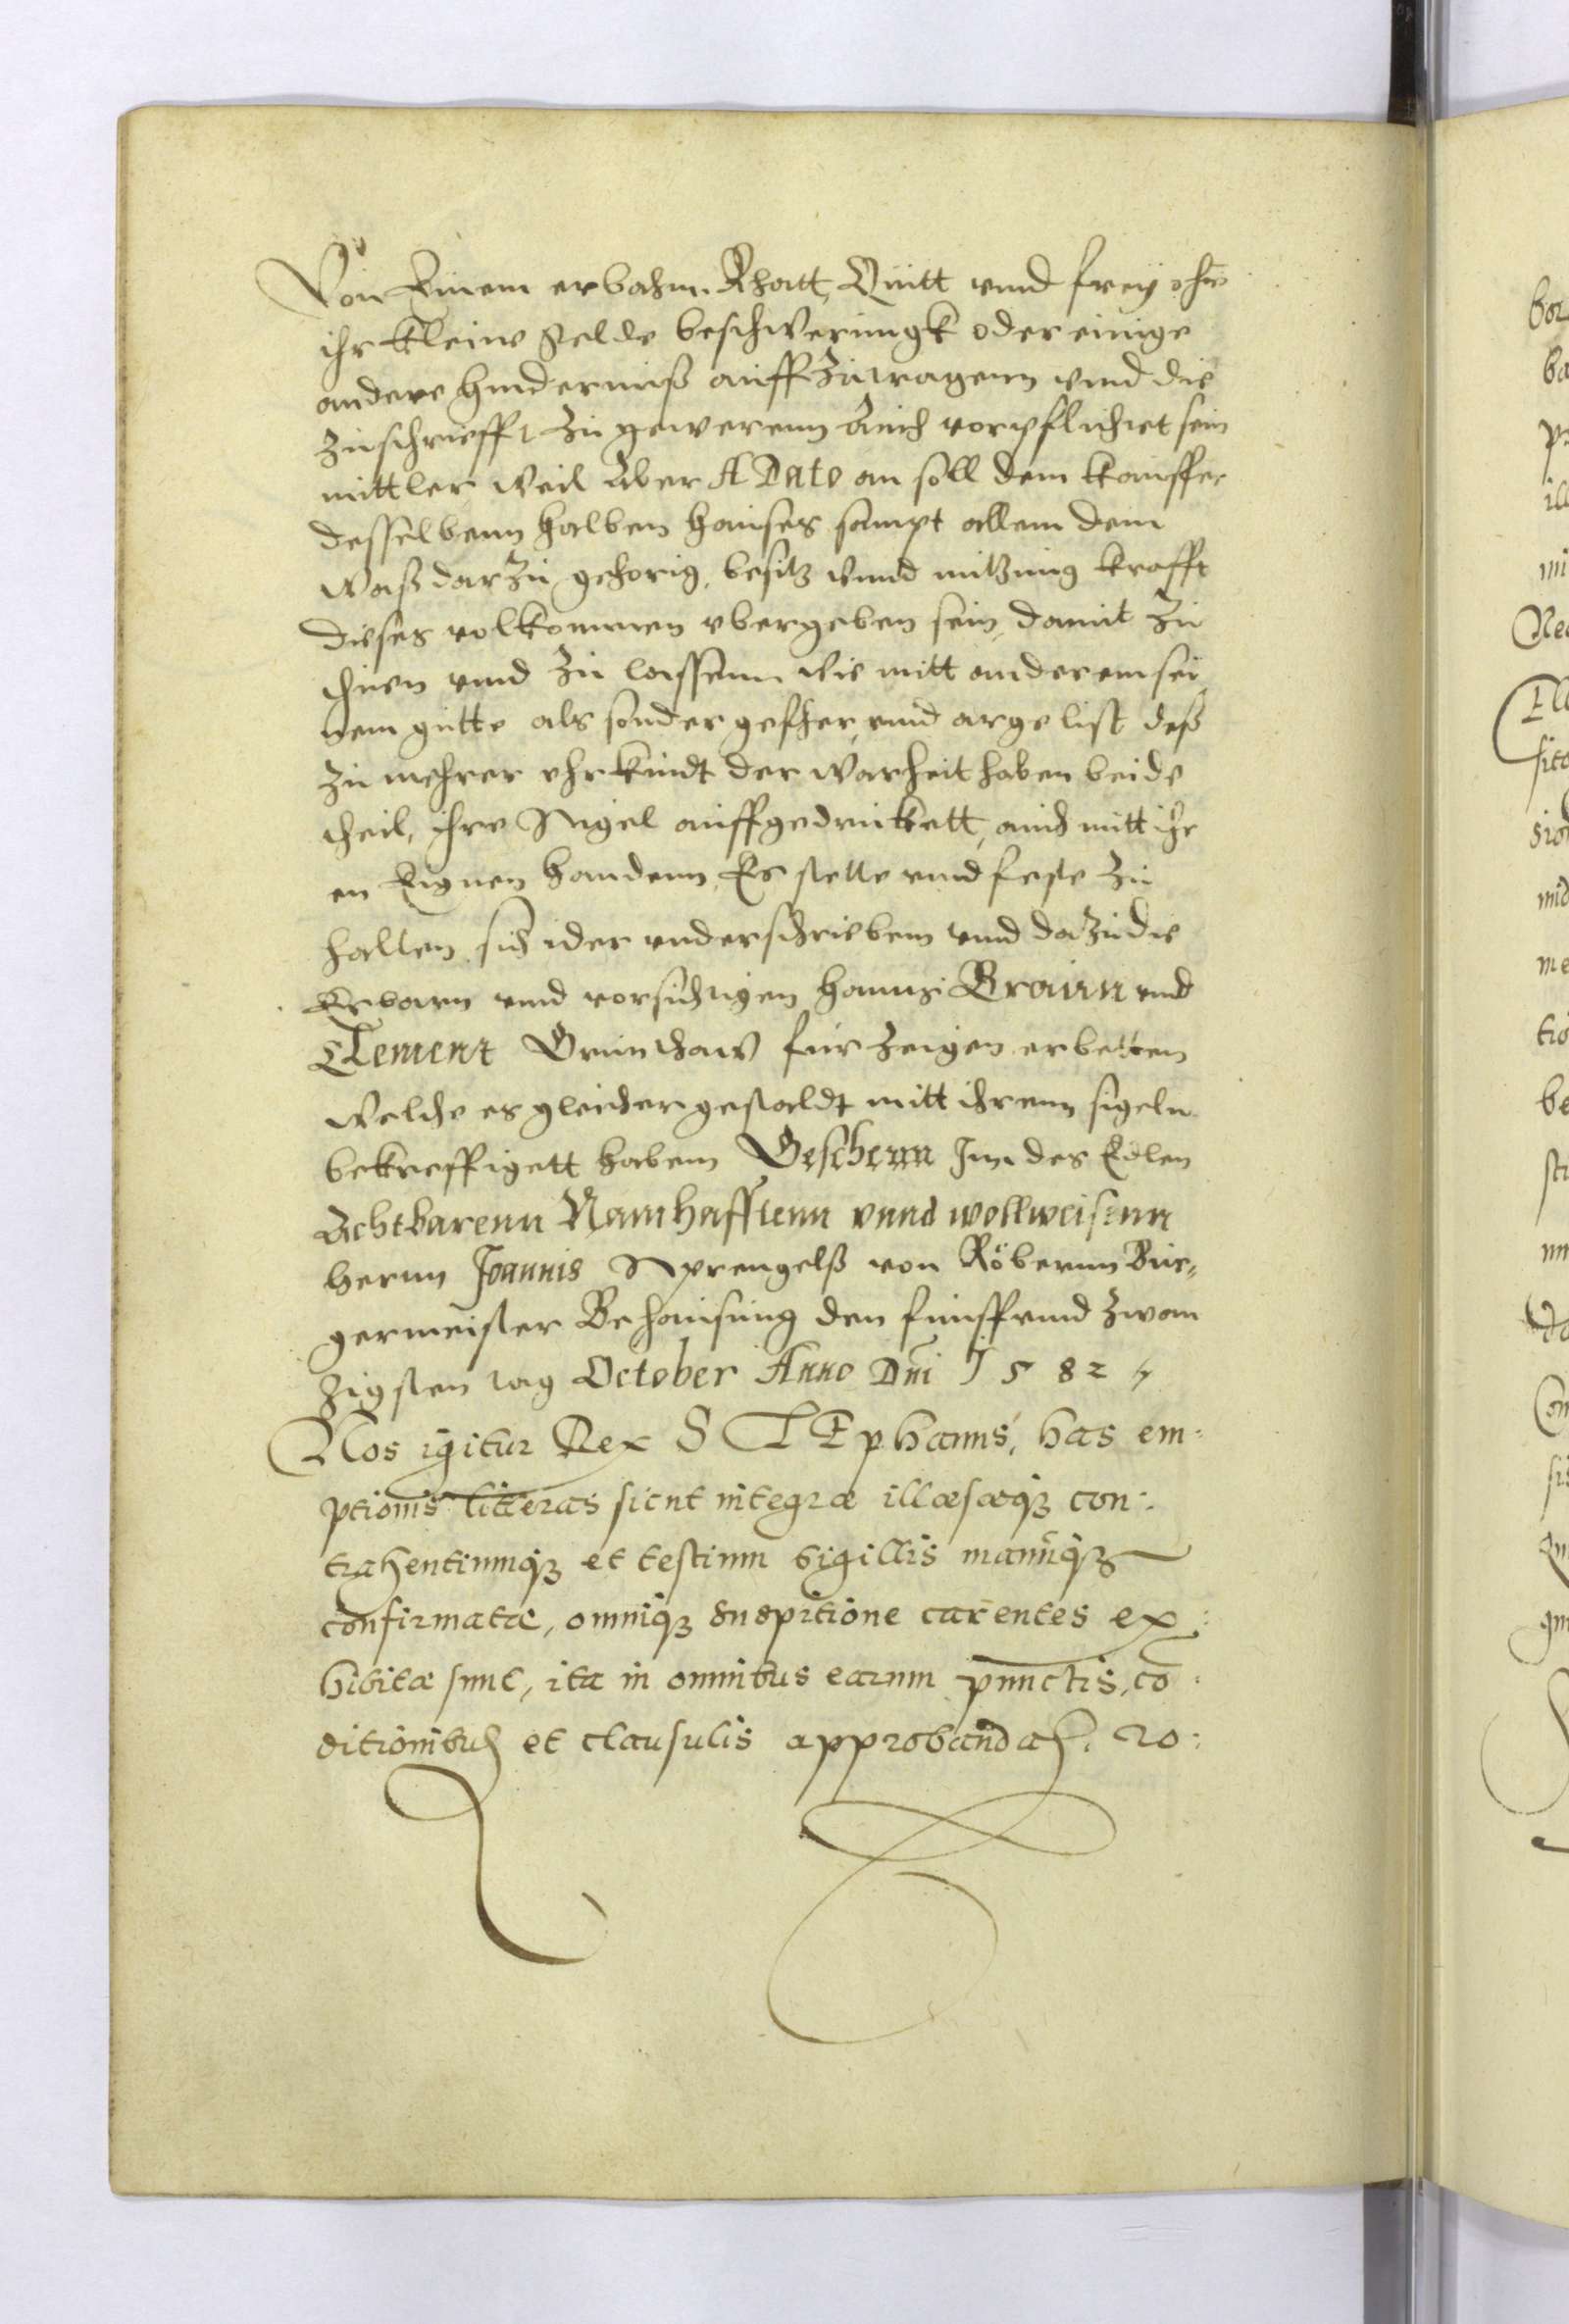 Von Einem erbahm Rhatt, Quitt vnnd freÿ ohn
ihr kleine gelde beschwerungk oder einige
andere hinderniß auffzutragenn vnnd die
zuschriefft zu gewerenn Auch vorpflichtet sein
mittler weil Aber A Dato an soll dem kauffer
desselbenn halben hauses sampt allem dem
waß darzu gehorig, besitz vnnd nützung krafft
dieses volkommen vbergeben sein, damit zu
thuen vnnd zu lassenn wie mitt anderem sei
nem gutte als sonder gefher, vnnd argelist deß
zu mehrer vhrkundt der warheit haben beide
theil, ihre Sigel auffgedruckett, auch mitt ihr
en Eignen handenn, Es stette vnnd feste zu
halten sich ider vnderschriebenn vnnd dazu die
Erbarn vnnd vorsichtigen Hanns Braun vnd
Clement Grunthaw für Zeugen erbetten
welche es gleichergestaldt mitt ihrenn sigeln
bekreffigett habenn Geschenn Inn des Edlen
Achtbarenn Namhafftenn vnnd wollweisenn
herrnn Joannis Sprengelß von Röbernn Bür„
germeister Behausung den funffvnnd zwan
zigsten tag October Anno Dni 1582
Nos igitur Rex STEphanus, has em:
ptionis litteras sicut integræ illæsæq₃ con:
trahentiumq₃ et testium sigillis manuq₃
confirmatæ, omniq₃ suspitione carentes ex:
hibitæ sunt, ita in omnibus earum punctis, co
ditionibus et clausulis approbandas, ro:
bor
ba
mi
sio
mid
me
tio
be